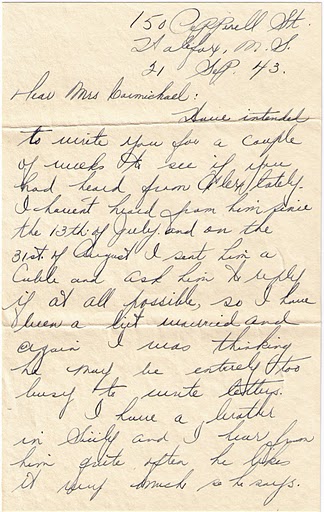 150 Pepperell St.
Halifax, N.S.
21 Sep. 43.
Dear Mrs Carmichael:
Have intended
to write you for a couple
of weeks to see if you
had heard from lately.
I havent heard from him since
the 13th of July and on the
31st of August I sent him a
Cable and ask him to reply
if at all possible, so I have
been a bit worried and
again I was thinking
he may be entirely too
busy to write letters.
I have a brother
in Sicily and I hear from
him quite often he likes
it very much so he says.